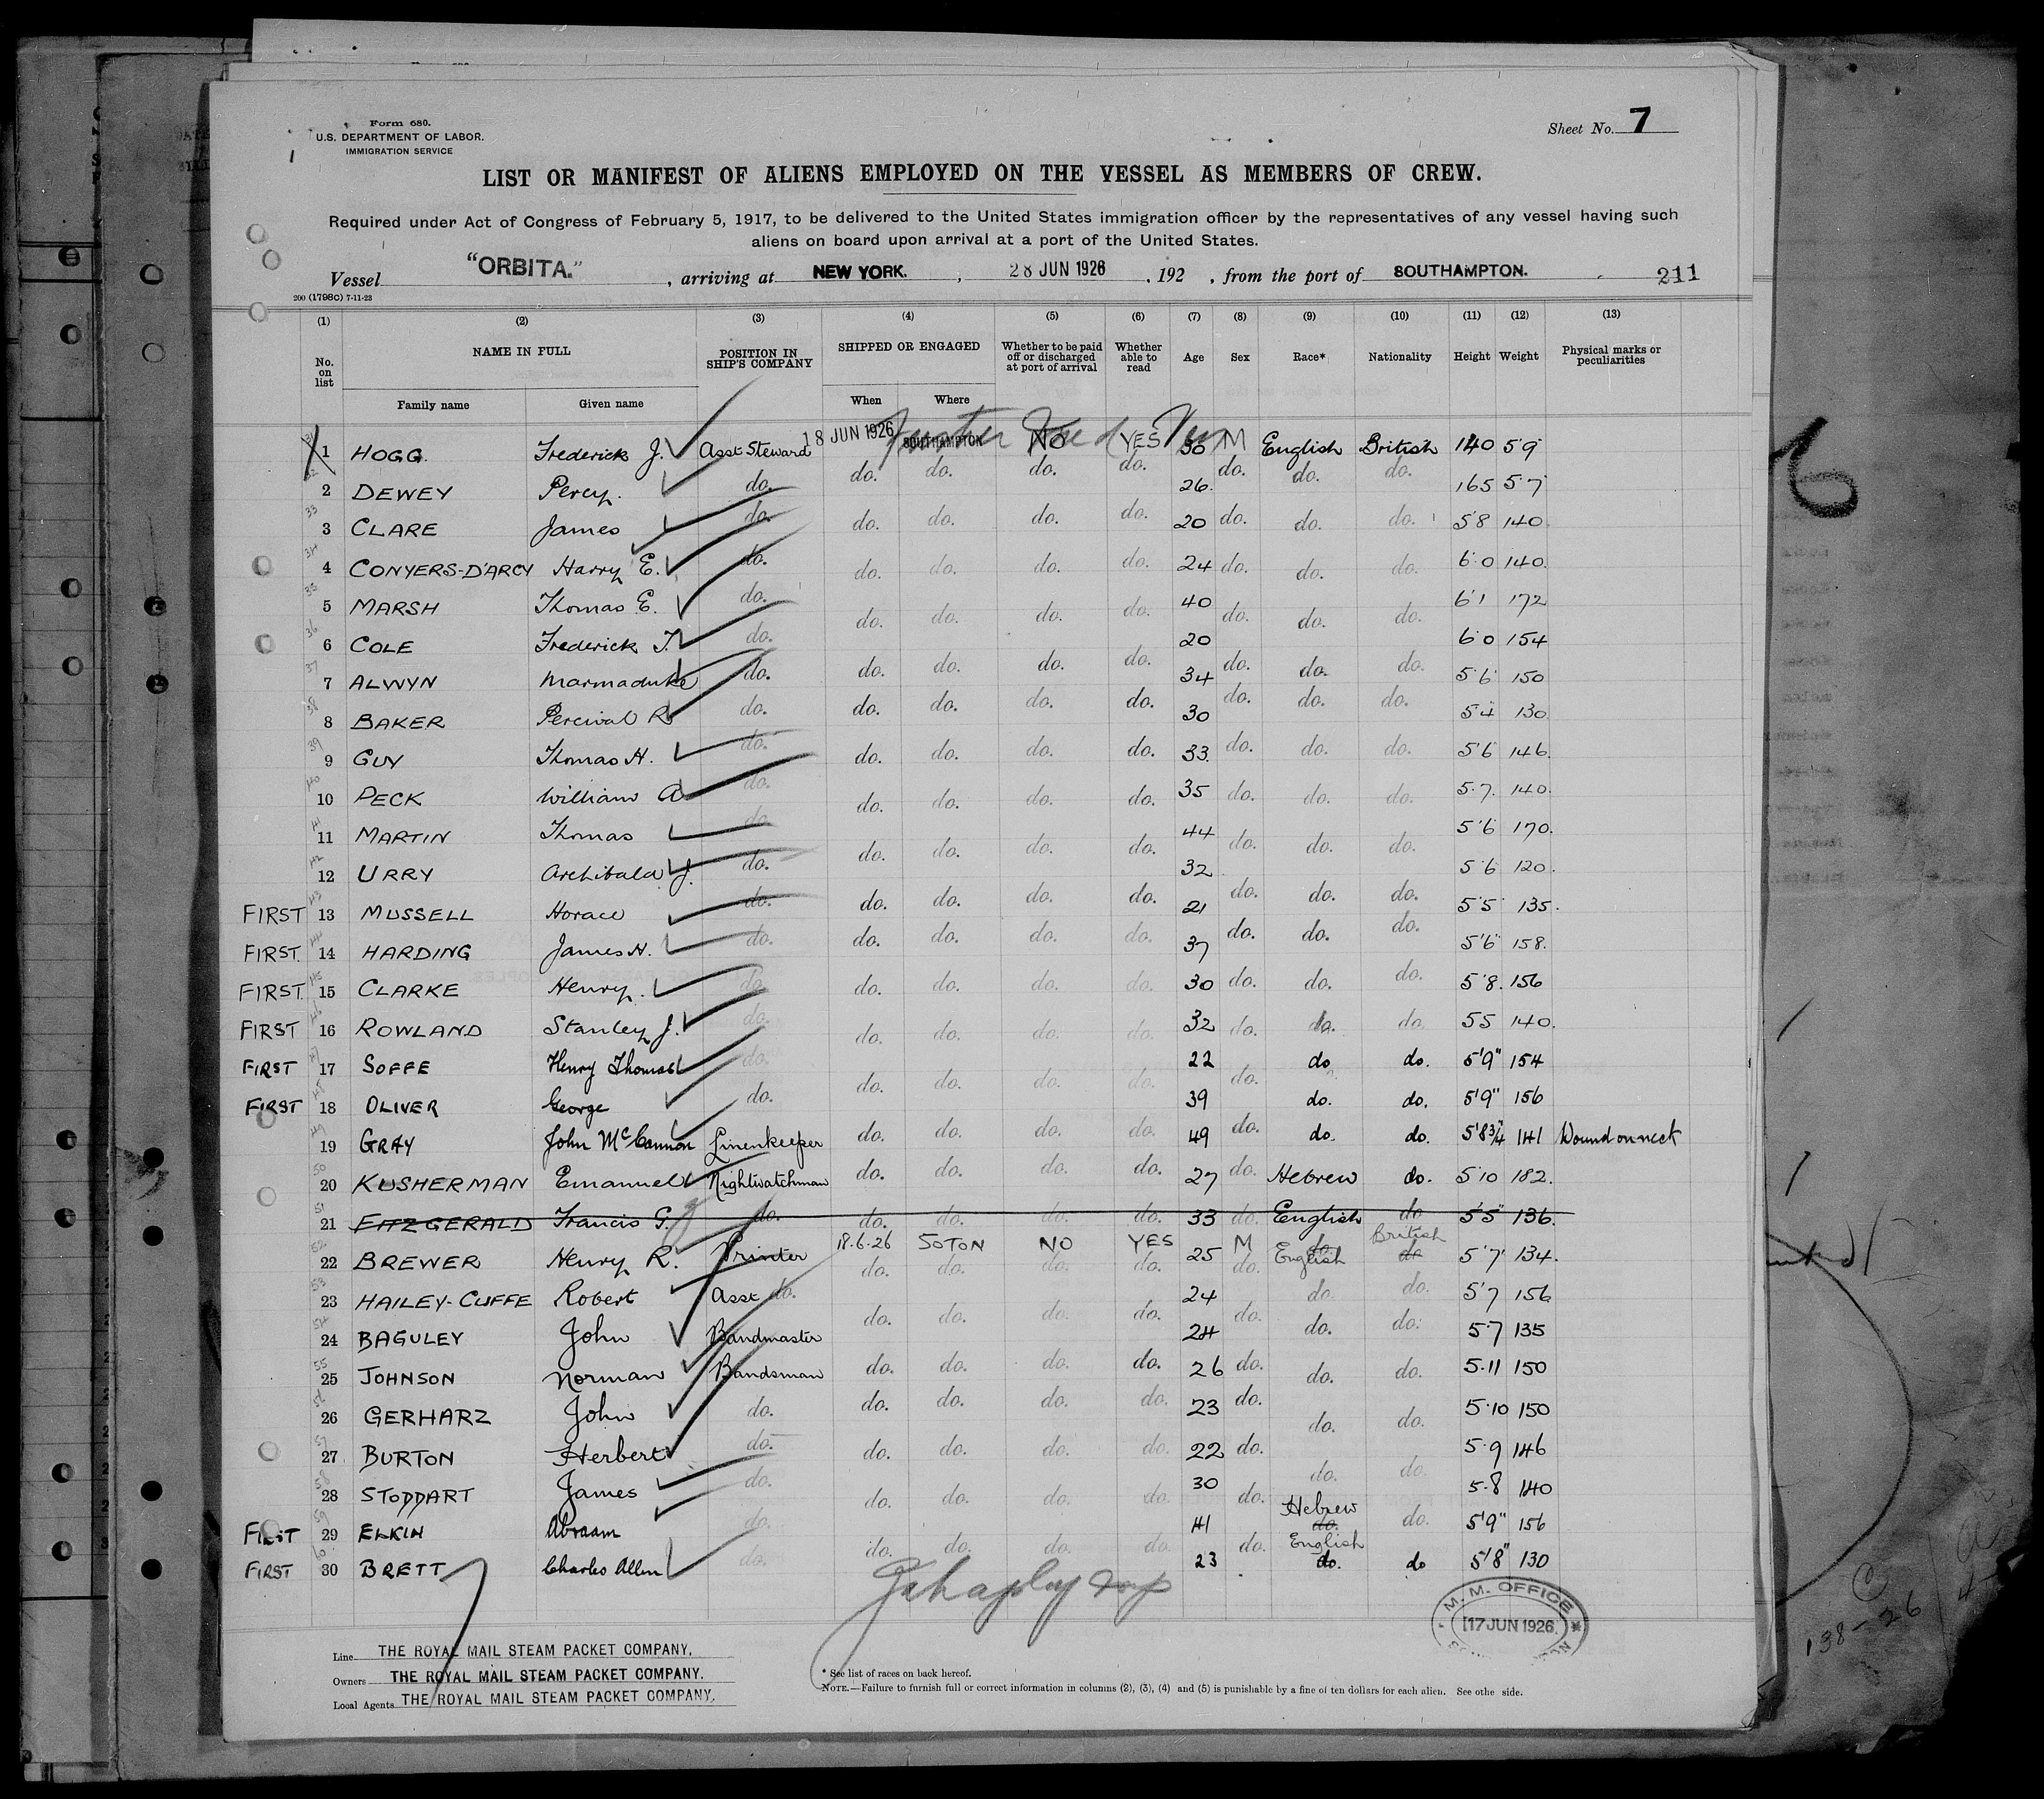 Form 680.
U.S. DEPARTMENT OF LABOR.
IMMIGRATION SERVICE
Sheet No. 7
LIST OR MANIFEST OF ALIENS EMPLOYED ON THE VESSEL AS MEMBERS OF CREW.
Required under Act of Congress of February 5, 1917, to be delivered to the United States immigration officer by the representatives of any vessel having such
aliens on board upon arrival at a port of the United States.
Vessel "ORBITA." , arriving at NEW YORK. , 28 JUN 1926 , 192 , from the port of SOUTHAMPTON. 211
200 (1798c) 7-11-23
(1) (2) (3) (4) (5) (6) (7) (8) (9) (10) (11) (12) (13)
No. on list NAME IN FULL POSITION IN SHIP'S COMPANY SHIPPED OR ENGAGED Whether to be paid off or discharged at port of arrival Whether able to read Age Sex Race* Nationality Height Weight Physical marks or peculiarities
Family name Given name When Where
1 HOGG. Frederick J. Asst Steward 18 JUN 1926 SOUTHAMPTON NO YES 30 M English British 140 5'9
2 DEWEY Percy. do. do. do. do. do. 26. do. do. do. 165 5'7
3 CLARE James do. do. do. do. do. 20 do. do. do. 5'8 140.
4 CONYERS-D'ARCY Harry E. do. do. do. do. do. 24 do. do. do. 6'0 140.
5 MARSH Thomas E. do. do. do. do. do. 40 do. do. do. 6'1 172
6 COLE Frederick T. do. do. do. do. do. 20 do. do. do. 6'0 154
7 ALWYN Marmaduke do. do. do. do. do. 34 do. do. do. 5'6 150
8 BAKER Percival R. do. do. do. do. do. 30 do. do. do. 5'4 130
9 GUY Thomas H. do. do. do. do. do. 33. do. do. do. 5'6 146.
10 PECK William A do. do. do. do. do. 35 do. do. do. 5.7. 140.
11 MARTIN Thomas do. do. do. do. do. 44 do. do. do. 5'6 170.
12 URRY Archibald J. do. do. do. do. do. 32 do. do. do. 5'6 120.
FIRST 13 MUSSELL Horace do. do. do. do. do. 21 do. do. do. 5'5 135.
FIRST. 14 HARDING James H. do. do. do. do. do. 37 do. do. do. 5'6 158.
FIRST. 15 CLARKE Henry. do. do. do. do. do. 30 do. do. do. 5'8. 156
FIRST 16 ROWLAND Stanley J. do. do. do. do. do. 32 do. do. do. 5'5 140.
FIRST 17 SOFFE Henry Thomas do. do. do. do. do. 22 do. do do. 5'9" 154
FIRST 18 OLIVER George do. 39 do. do. 5'9" 156
19 GRAY John McCannon Linenkeeper do. do. do. do. 49 do. do. do. 5'8¾" 141 Wound on neck
20 KUSHERMAN Emanuel Nightwatchman do. do. do. do. 27 do. Hebrew do. 5'10 182.
21 FITZGERALD Francis G. do. do. do. do. do. 33 do. English do 5'5" 136.
22 BREWER Henry R. Printer 18.6.26 SOTON NO YES 25 M English do. British do 5'7 134.
23 HAILEY-CUFFE Robert Asst do. do. do. do. do. 24 do. do. do. 5'7 156
24 BAGULEY John Bandmaster do. do. do. do. 24 do. do. do. 5.7 135
25 JOHNSON Norman Bandsman do. do. do. do. 26 do. do. do. 5.11 150
26 GERHARZ John do. do. do. do. do. 23 do. do. do. 5.10 150
27 BURTON Herbert do. do. do. do. do. 22 do. do. do. 5.9 146
28 STODDART James do. do. do. do. do. 30 do. do. do. 5.8 140
FIRST 29 ELKIN Abraam do. 41 Hebrew do. do. 5'9" 156
FIRST 30 BRETT Charles Allen do. do. do. do. do. 23 do. English do. do 5'8" 130
M. M. OFFICE
17 JUN 1926
Line THE ROYAL MAIL STEAM PACKET COMPANY.
Owners THE ROYAL MAIL STEAM PACKET COMPANY.
Local Agents THE ROYAL MAIL STEAM PACKET COMPANY.
* See list of races on back hereof.
NOTE.—Failure to furnish full or correct information in columns (2), (3), (4) and (5) is punishable by a fine of ten dollars for each alien. See othe side.
6
138-26